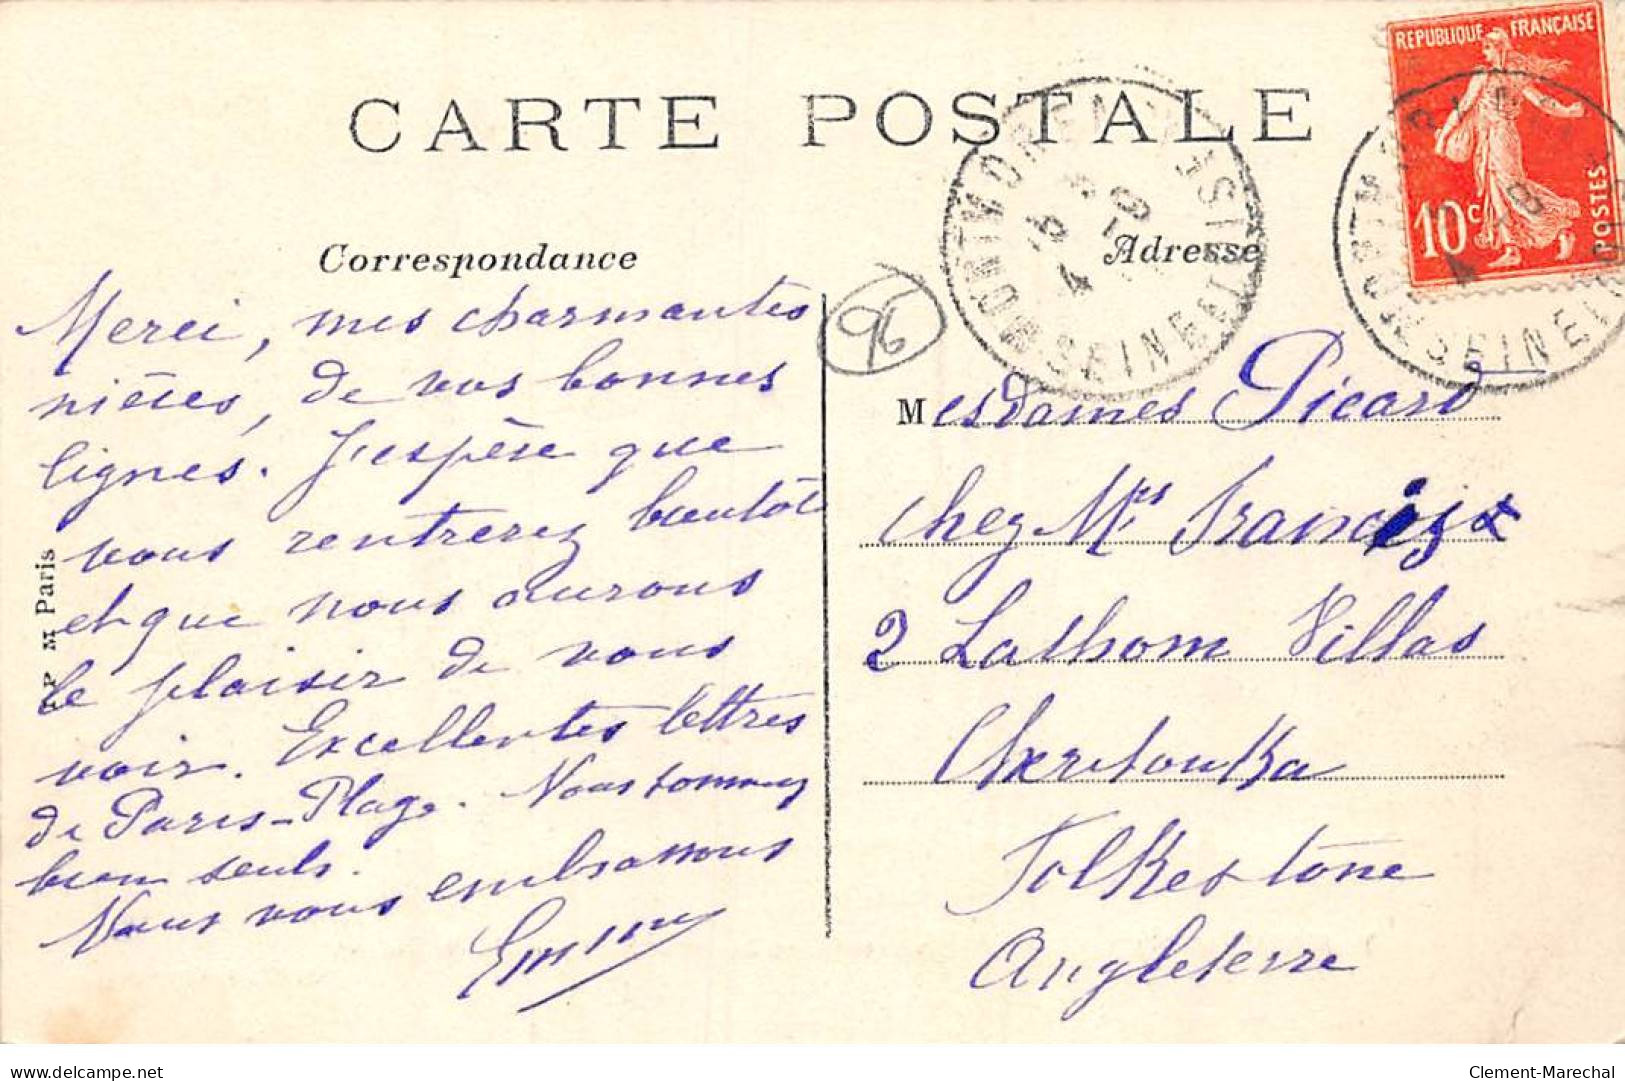 CARTE POSTALE
REPUBLIQUE FRANÇAISE
10c
POSTES
Correspondance
Adresse
Merci, mes charmantes
nièces, de vos bonnes
lignes. J'espère que
vous rentrerez bientôt
et que nous aurons
le plaisir de vous
voir. Excellentes lettres
de Paris-Plage. Nous sommes
bien seuls.
Nous vous embrassons
96
Mesdames Picard
chez Mrs Francis
2 Lathom Villas
Folkestone
Angleterre
MONTMORENCY SEINE ET OISE
E.P. M Paris
delcampe.net
Clement-Marechal